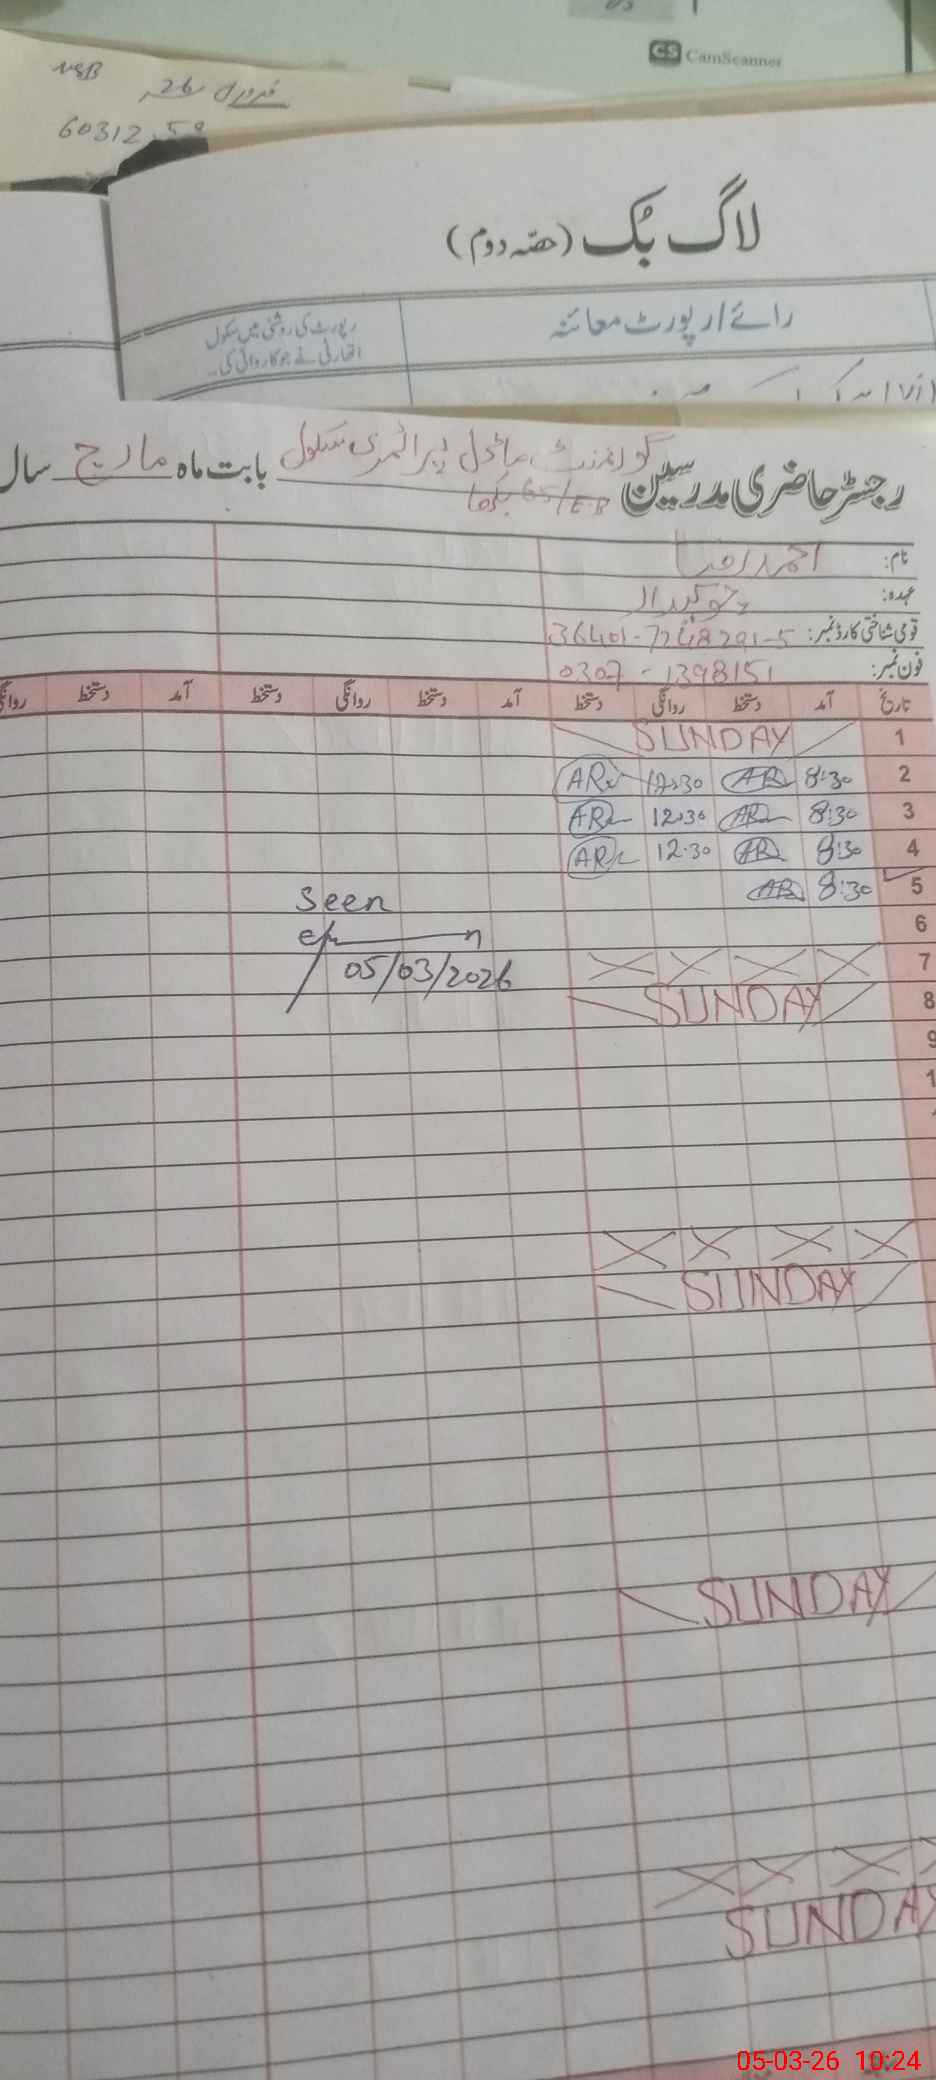 CS CamScanner
فروری 26
60312
لاگ بُک (حصّہ دوم)
رائے / رپورٹ معائنہ
رپورٹ کی روشنی میں سکول
اتھارٹی نے جو کاروائی کی۔
رجسٹر حاضری مدرسین گورنمنٹ ماڈل پرائمری سکول بابت ماہ مارچ سال
65/E.B
نام: احمد رضا
عہدہ: چوکیدار
قومی شناختی کارڈ نمبر: 36401-7248291-5
فون نمبر: 0307-1398151
تاریخ آمد دستخط روانگی دستخط آمد دستخط روانگی دستخط آمد دستخط روانگی
1 SUNDAY
2 8:30 AR 12:30 AR
3 8:30 AR 12:30 AR
4 8:30 AR 12:30 AR
5 8:30 AR
Seen
6
05/03/2026
7
8 SUNDAY
9
1
SUNDAY
SUNDAY
SUNDAY
05-03-26 10:24